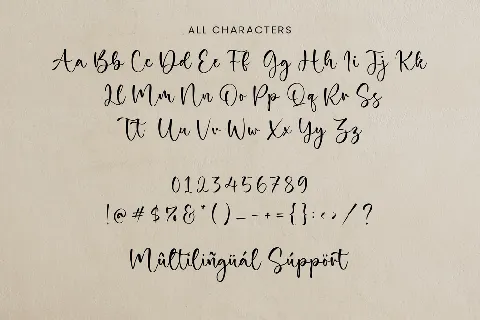 ALL CHARACTERS
Aa Bb Cc Dd Ee Ff Gg Hh Ii Jj Kk
Ll Mm Nn Oo Pp Qq Rr Ss
Tt Uu Vv Ww Xx Yy Zz
0123456789
!@#$%&*()_-+={}:‹›/?
Múltilíñgüál Súppört